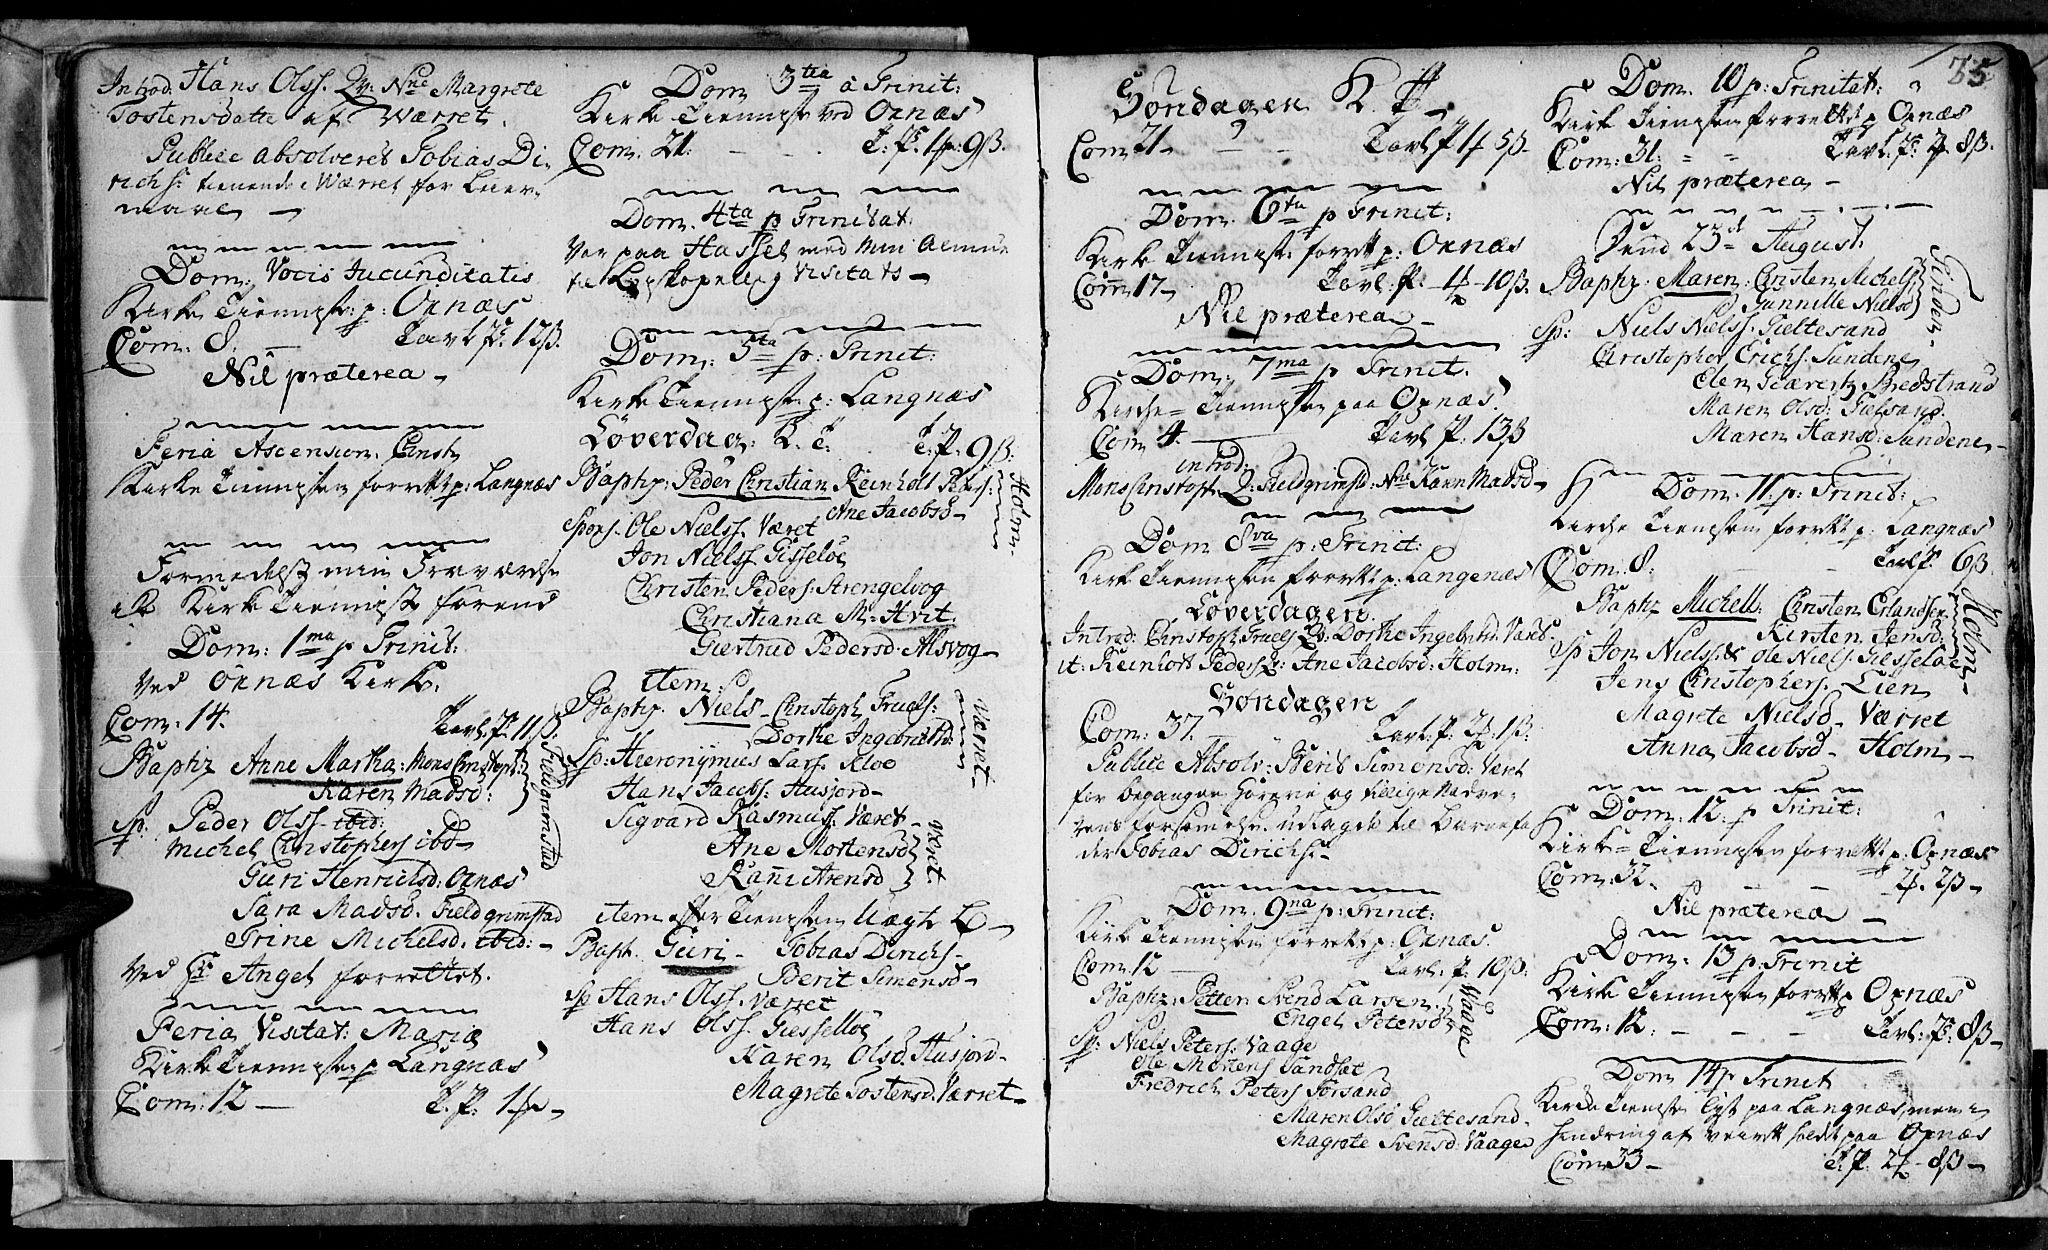 Introd. Hans Olss. Qv: Nne Margrete
Tostensdatte af Wærret.
Publice absolveret Tobias Di-
richs: tienende i Wærret for Leier-
maal —
Dom: Vocis Jucunditatis
Kirke Tienniste: p: Oxnæs
Com: 8. — Tavl p: 12ß.
Nil præterea —
Feria Ascension. Christi
Kirke Tiennisten forrett p: Langnæs
Formedelst min Fraværelse
ikke Kirke Tienniste førend
Dom: 1ma p Trinit:
Ved Oxnæs Kirke.
Com. 14. Tavl. p. 11ß.
Baptz Anne Martha: Mons Christoph:
Karen Madsd:
Fieldgrimstad
Sp: Peder Olss. ibid:
Michel Christophers ibd —
Guri Henrichsd: Oxnæs
Sara Madsd. Fieldgrimstad
Trine Michelsd. ibid: —
Ved Hr Angel forrettet.
Feria Visitat: Mariæ
Kirke Tienniste p Langnæs
Com: 12 — T. P: 1 —
Dom 3tia à Trinit:
Kirke Tienniste ved Oxnæs
Com. 21: — — T: P. 1 9ß.
Dom. 4ta p Trinitat:
Var paa Hassel med min Almue
til Biskopelig Visitats —
Dom: 5ta p: Trinit:
Kirke Tienniste p: Langnæs
Løverdag: K. T. T. P. 9ß:
Baptz: Peder Christian Reinholt Peders:
Ane Jacobsd —
Holm.
Spons. Ole Nielss. Været
Jon Nielss. Gisseløe
Christen Peders. Strengelvog
Christiana M: Hvit.
Giertrud Pedersd. Alsvog —
item:
Baptz. Niels — Christoph Truels:
Dorthe Ingebretsd:
Værret —
Sp: Hieronymus Lars. Kloe
Hans Jacobs: Husjord —
Sigvard Rasmuss. Været —
Ane Mortensd
Karri Arensd
Været
item efter Tiennisten Uægte B —
Bapt. Guri — Tobias Dirichs —
Berit Simonsd —
Sp Hans Olss. Værret
Hans Olss. Giesselløe
Karen Olsd. Husjord —
Magrete Tostensd. Værret —
35
Søndagen K. T. —
Com 21 — — Tavl p 1 5ß —
Dom. 6ta p Trinit:
Kirke Tienniste forrett p: Oxnæs
Com 17 — Tavl: P. — 10ß.
Nil præterea —
Dom: 7ma p Trinit.
Kirche = Tiennisten paa Oxnæs.
Com 4. — Tavl P. 13ß
introd:
Mons Christoph. Q: Fieldgrimstd: Nne Karen Madsd —
Dom 8va p: Trinit:
Kirke Tiennisten forrett p: Langenæs
Løverdagen
Introd: Christoph. Truels Qv: Dorthe Ingebretsd: Været:
it: Reinholt Peders Qv: Ane Jacobsd: Holm:
Søndagen
Com: 37. Tavl. p. 2 1ß:
Publice Absolv: Berit Simonsd: Været
for begangen Horerie og tillige Nadve-
rens forsømelse. udlagde til Barnefa
der Tobias Dirichs: —
Dom. 9na p: Trinit:
Kirke Tiennisten forrett p: Oxnæs.
Com: 12 — Tavl. p. 10ß:
Baptz: Petter: Svend Larsen
Engel Petersd
Vaage
Sp: Niels Peters: Vaage
Ole Mortens Sandset
Fredrich Peters Forsand
Maren Olsd Gieltesand.
Magrete Svensd: Vaage
Dom. 10 p: Trinitat:
Kirke Tiennisten forrettet p Oxnæs
Com: 31: = = Tavl: P. 2 8ß.
Nil præterea —
d 23de August:
Baptz: Maren: Christen Michels
Gunnille Nielsd
Tinden —
Sp: Niels Nielss. Gieltesand
Christopher Erichs. Sundene
Elen Giærertz Bredstrand
Maren Olsd: Gielsand.
Maren Hansd: Sundene —
Dom. 11. p: Trinit:
Kirche Tiennisten forrett p: Langnæs
Com: 8. — Tavl p. 6ß
Baptz Michell: Christen Erlandsen
Kirsten Jensd:
Holm —
Sp Jon Nielss. & Ole Niels: Giesseløe
Jens Christophers. Lien
Magrete Nielsd — Værret
Anna Jacobsd — Holm —
Dom: 12: p Trinit:
Kirke = Tiennisten forrett p: Oxnæs
Com: 32. — — 2 2ß —
Nil præterea —
Dom: 13 p: Trinit
Kirke Tiennisten forrett p Oxnæs
Com: 12: — — — Tavl. P. 8ß —
Dom 14 p Trinit
Kirke Tienniste lyst paa Langnæs, men i
hendring af veiret holdt paa Oxnæs
Com 33 — T. P. 2 8ß —